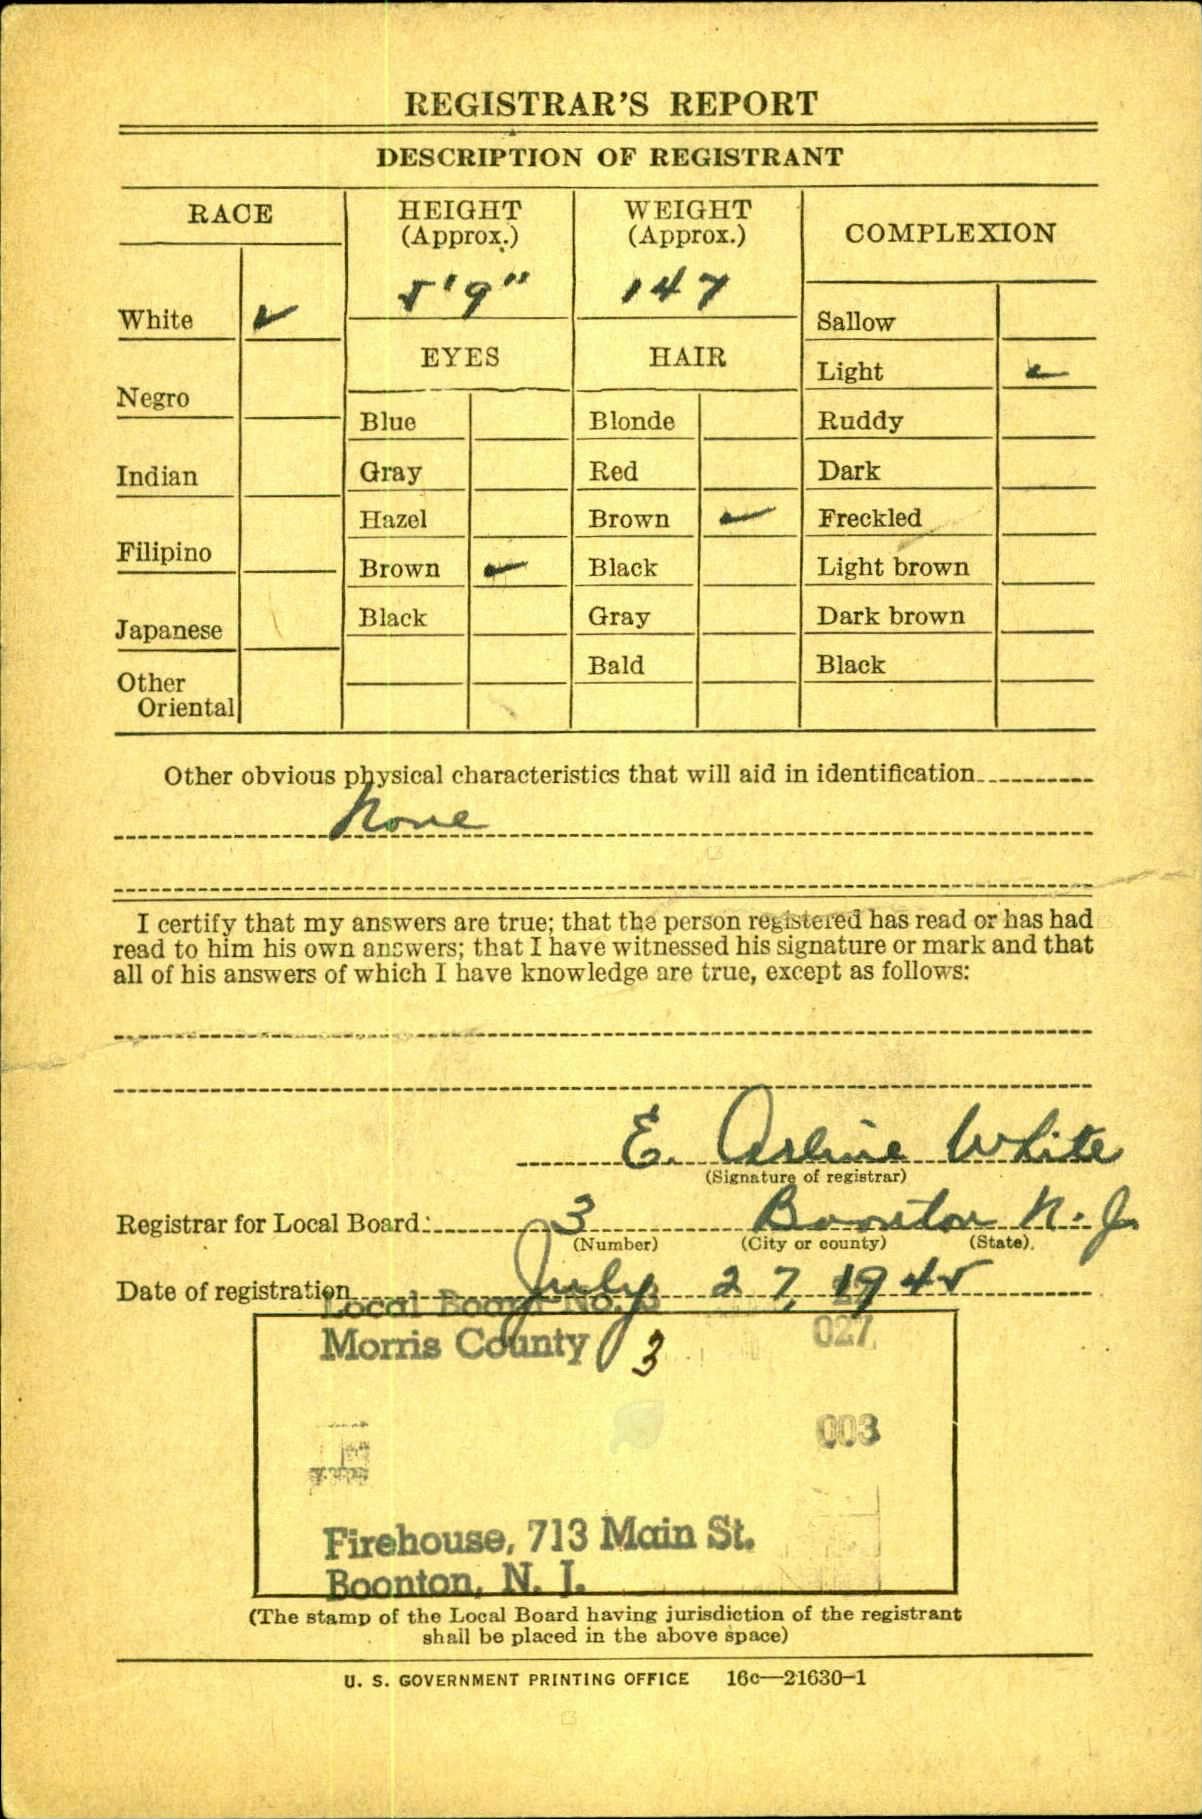 REGISTRAR'S REPORT
DESCRIPTION OF REGISTRANT
RACE
HEIGHT
(Approx.)
WEIGHT
(Approx.)
COMPLEXION
5'9"
147
White ✓
Sallow
EYES
HAIR
Light ✓
Negro
Blue
Blonde
Ruddy
Indian
Gray
Red
Dark
Hazel
Brown ✓
Freckled
Filipino
Brown ✓
Black
Light brown
Japanese
Black
Gray
Dark brown
Bald
Black
Other
Oriental
Other obvious physical characteristics that will aid in identification
None
I certify that my answers are true; that the person registered has read or has had
read to him his own answers; that I have witnessed his signature or mark and that
all of his answers of which I have knowledge are true, except as follows:
E. Arline White
(Signature of registrar)
Registrar for Local Board: 3 Boonton N.J.
(Number) (City or county) (State)
Date of registration July 27, 1945
Local Board No. 3
Morris County 3 027
003
Firehouse, 713 Main St.
Boonton, N. J.
(The stamp of the Local Board having jurisdiction of the registrant
shall be placed in the above space)
U. S. GOVERNMENT PRINTING OFFICE 16c—21630-1